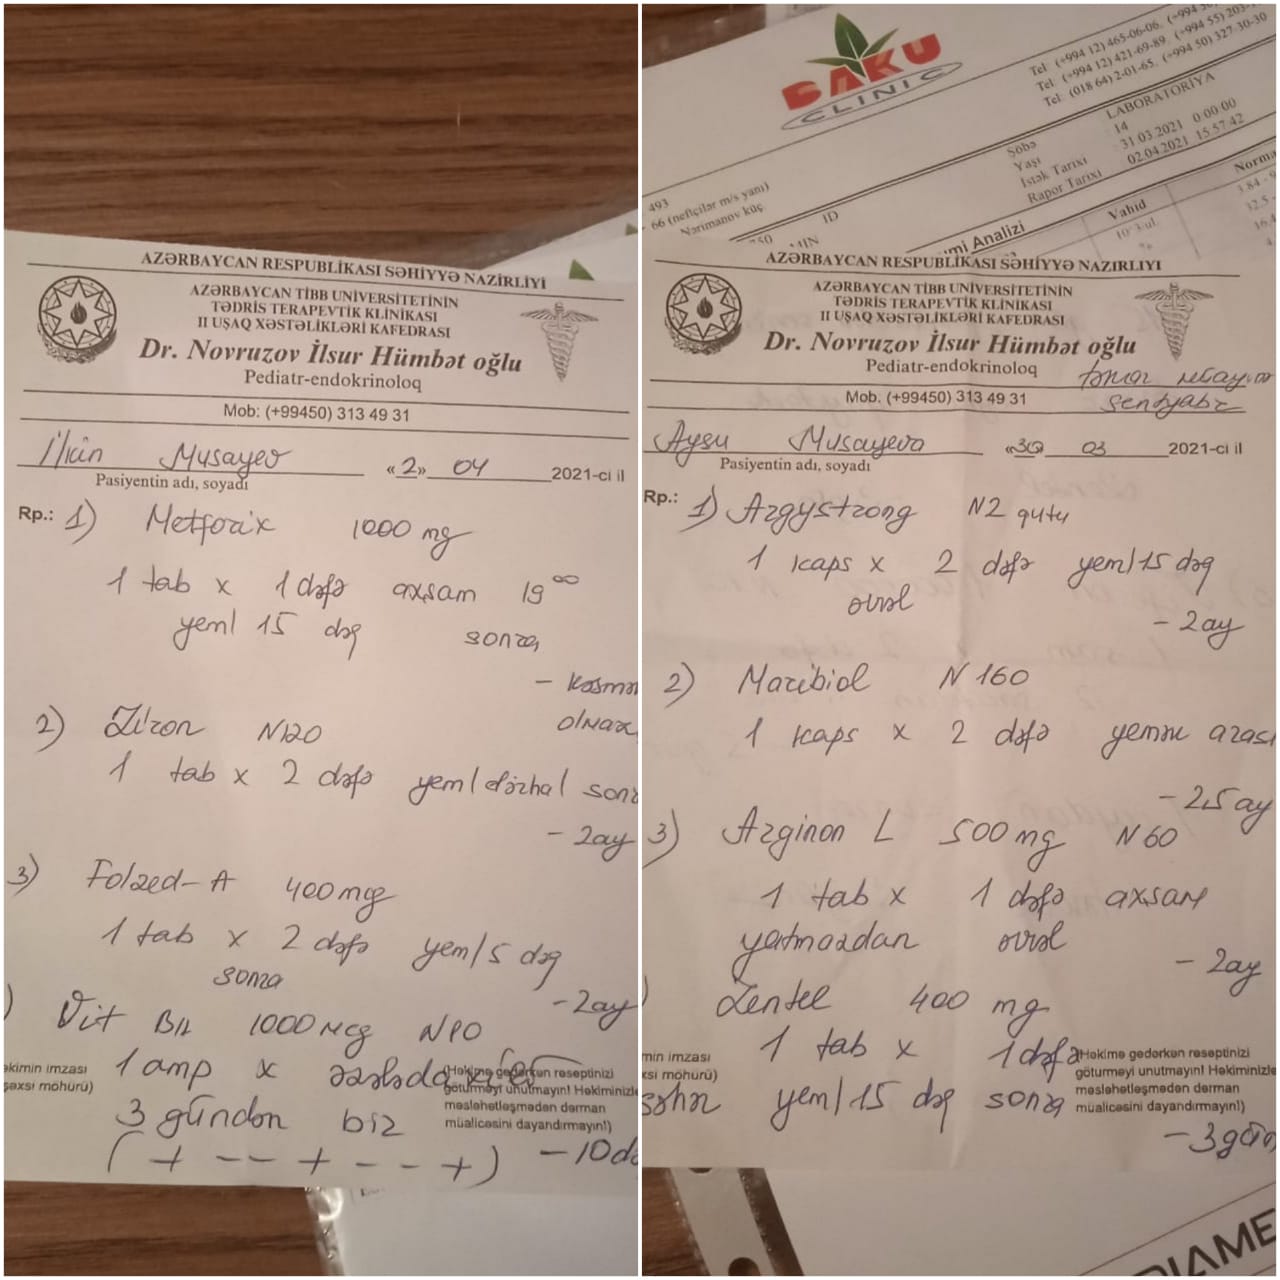 AZƏRBAYCAN RESPUBLİKASI SƏHİYYƏ NAZİRLİYİ
AZƏRBAYCAN TİBB UNİVERSİTETİNİN
TƏDRİS TERAPEVTİK KLİNİKASI
II UŞAQ XƏSTƏLİKLƏRİ KAFEDRASI
Dr. Novruzov İlsur Hümbət oğlu
Pediatr-endokrinoloq
Mob: (+99450) 313 49 31
İlkin Musayev «2» 04 2021-ci il
Pasiyentin adı, soyadı
Rp.: 1) Metforix 1000 mg
1 tab x 1 dəfə axşam 19 00
yem/ 15 dəq sonra
- kəsmə
olmaz
2) Ziron N120
1 tab x 2 dəfə yem/ dərhal son
- 2ay
3) Folzed-A 400 mcg
1 tab x 2 dəfə yem/ 5 dəq
sonra
- 2ay
) Vit B12 1000 mcg N10
1 amp x əzələdaxili
əkimin imzası
şəxsi möhürü)
(Həkimə gedərkən reseptinizi
götürməyi unutmayın! Həkiminizlə
məsləhətləşmədən dərman
müalicəsini dayandırmayın!)
3 gündən bir
( + - - + - - + ) - 10 də
BAKU
CLINIC
Tel: (+994 12) 465-06-06,
Tel: (+994 12) 421-69-89, (+994 55) 203-
Tel: (018 64) 2-01-65, (+994 50) 327-30-30
LABORATORİYA
Şöbə
Yaşı 14
İstək Tarixi 31.03.2021 0:00:00
Rapor Tarixi 02.04.2021 15:57:42
493
66 (neftçilər m/s yanı)
Nərimanov küç.
ID
mi Analizi
Vahid
Norma
AZƏRBAYCAN RESPUBLİKASI SƏHİYYƏ NAZİRLİYİ
AZƏRBAYCAN TİBB UNİVERSİTETİNİN
TƏDRİS TERAPEVTİK KLİNİKASI
II UŞAQ XƏSTƏLİKLƏRİ KAFEDRASI
Dr. Novruzov İlsur Hümbət oğlu
Pediatr-endokrinoloq
Mob: (+99450) 313 49 31
sentyabr
Aysu Musayeva «30» 03 2021-ci il
Pasiyentin adı, soyadı
Rp.: 1) Argystrong N2 qutu
1 kaps x 2 dəfə yem/ 15 dəq
əvvəl
- 2ay
2) Maribiol N 160
1 kaps x 2 dəfə yemək arası
- 2,5 ay
3) Arginon L 500 mg N 60
1 tab x 1 dəfə axşam
yatmazdan əvvəl
- 2ay
) Zentel 400 mg
1 tab x 1 dəfə
min imzası
xsi möhürü)
Həkimə gedərkən reseptinizi
götürməyi unutmayın! Həkiminizlə
məsləhətləşmədən dərman
müalicəsini dayandırmayın!)
səhər yem/ 15 dəq sonra
- 3 gün
DIAME